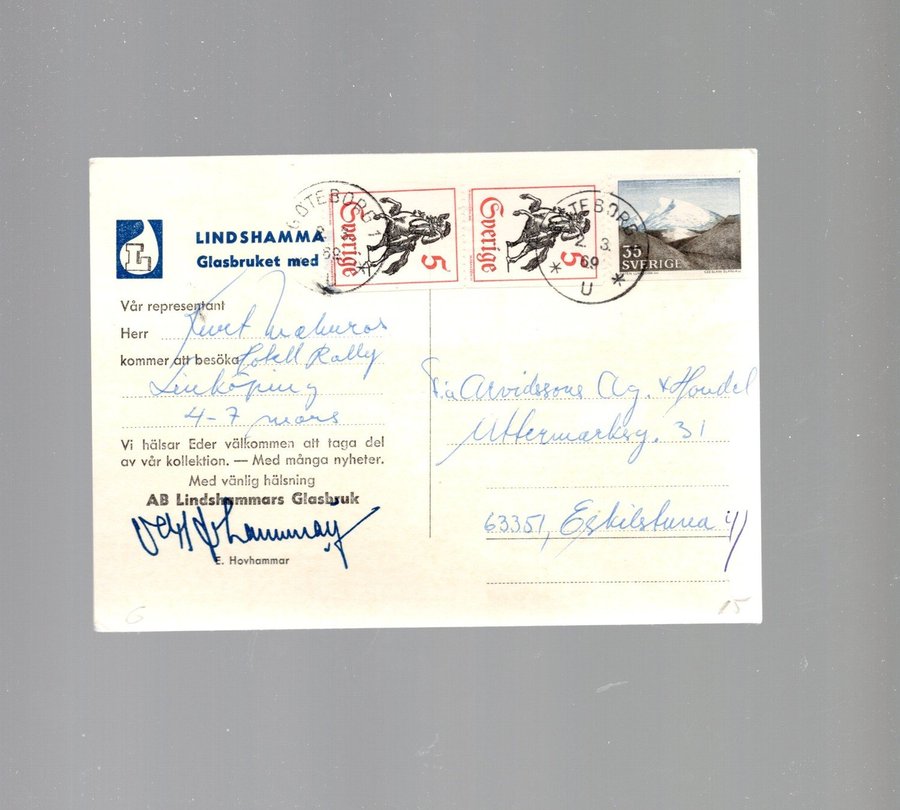 L
LINDSHAMMA
Glasbruket med
GÖTEBORG 1
69
Sverige
5
Sverige
5
GÖTEBORG
2. 3.
69
U
35
SVERIGE
Vår representant
Herr Kurt
kommer att besöka Hotell Rally
Linköping
4-7 mars
Vi hälsar Eder välkommen att taga del
av vår kollektion. — Med många nyheter.
Med vänlig hälsning
AB Lindshammars Glasbruk
E. Hovhammar
F:a Arvidssons Ag. & Handel
Uttermarksg. 31
63351, Eskilstuna
6
15